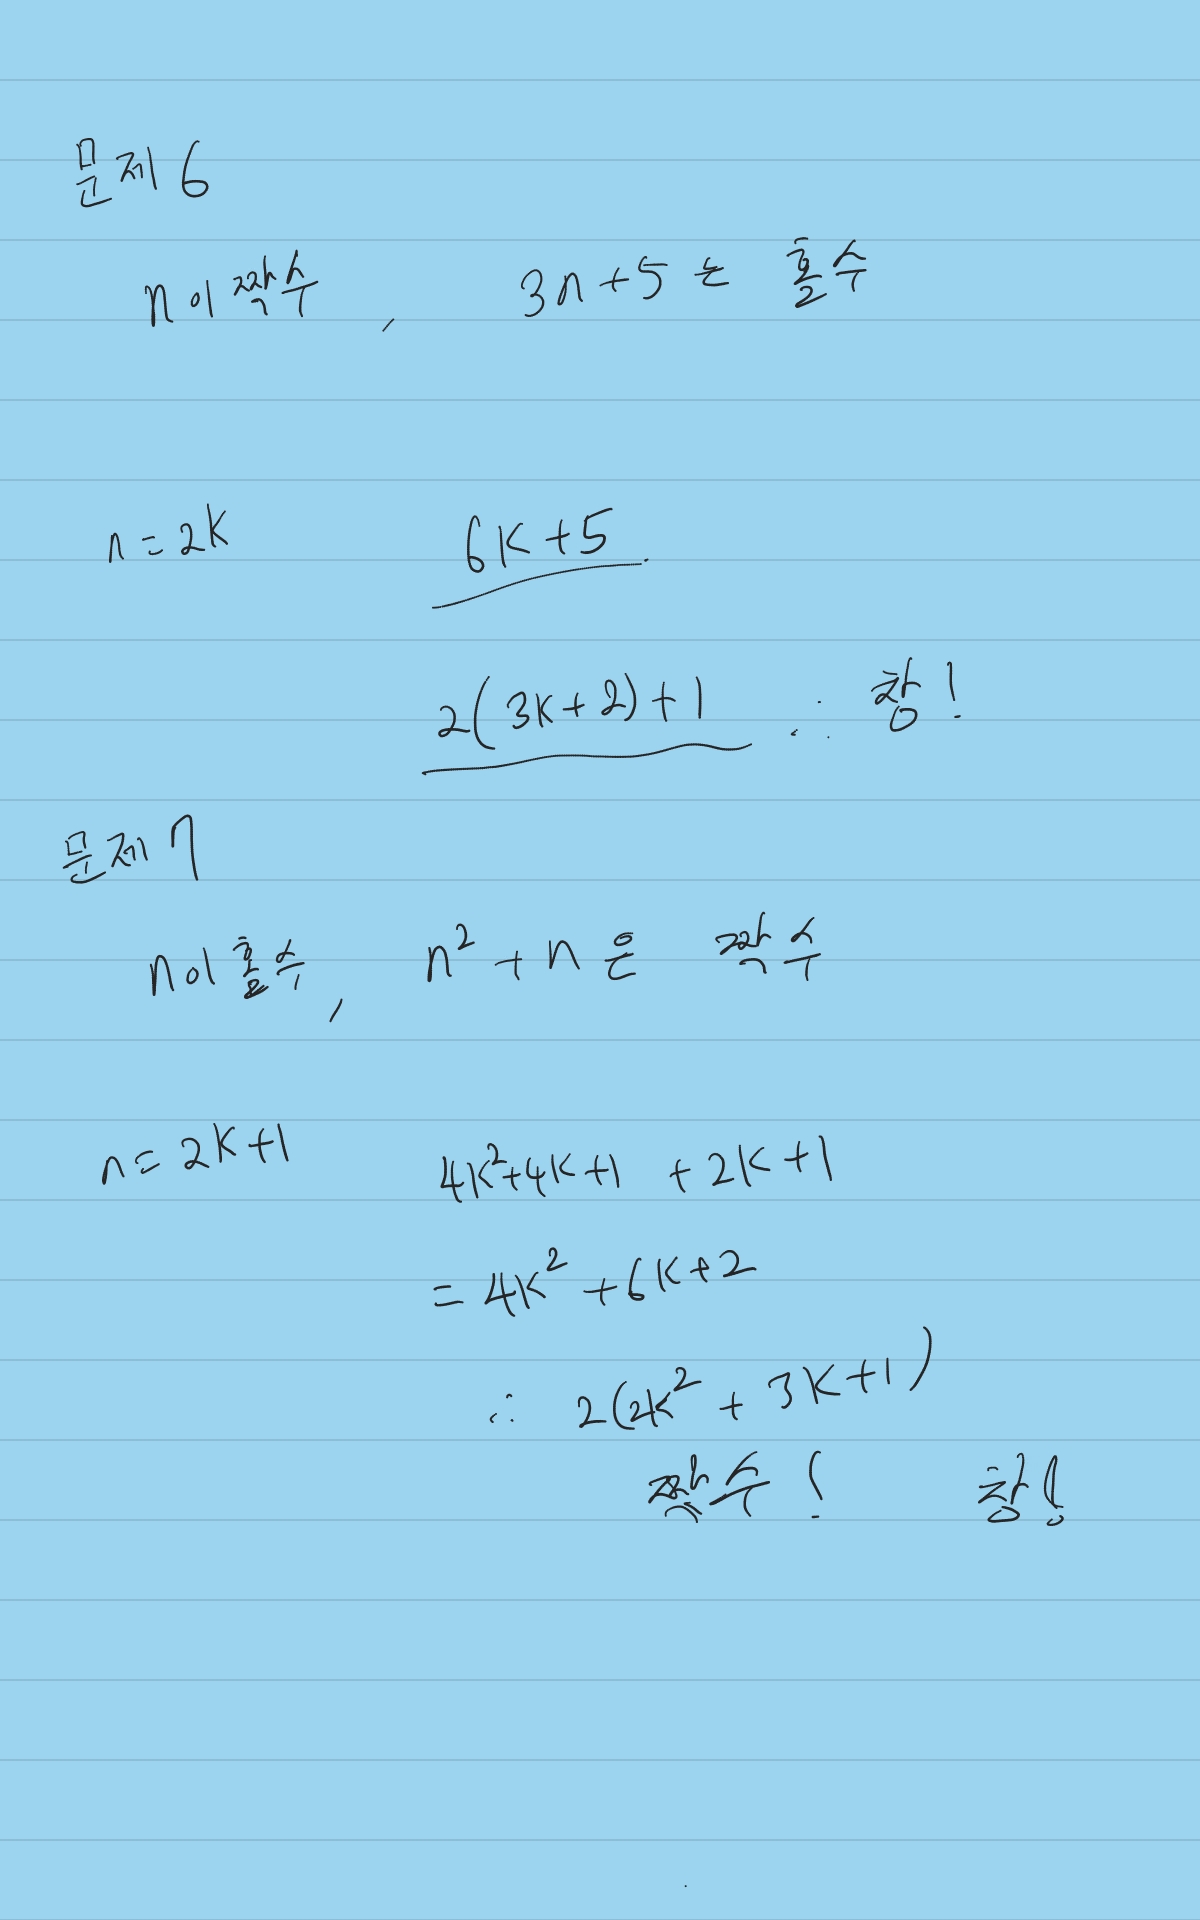 문제 6
n이 짝수, 3n+5는 홀수
n=2k 6k+5
2(3k+2)+1 ∴ 참!
문제 7
n이 홀수, n²+n은 짝수
n=2k+1 4k²+4k+1 +2k+1
=4k²+6k+2
∴ 2(2k²+3k+1)
짝수! 참!